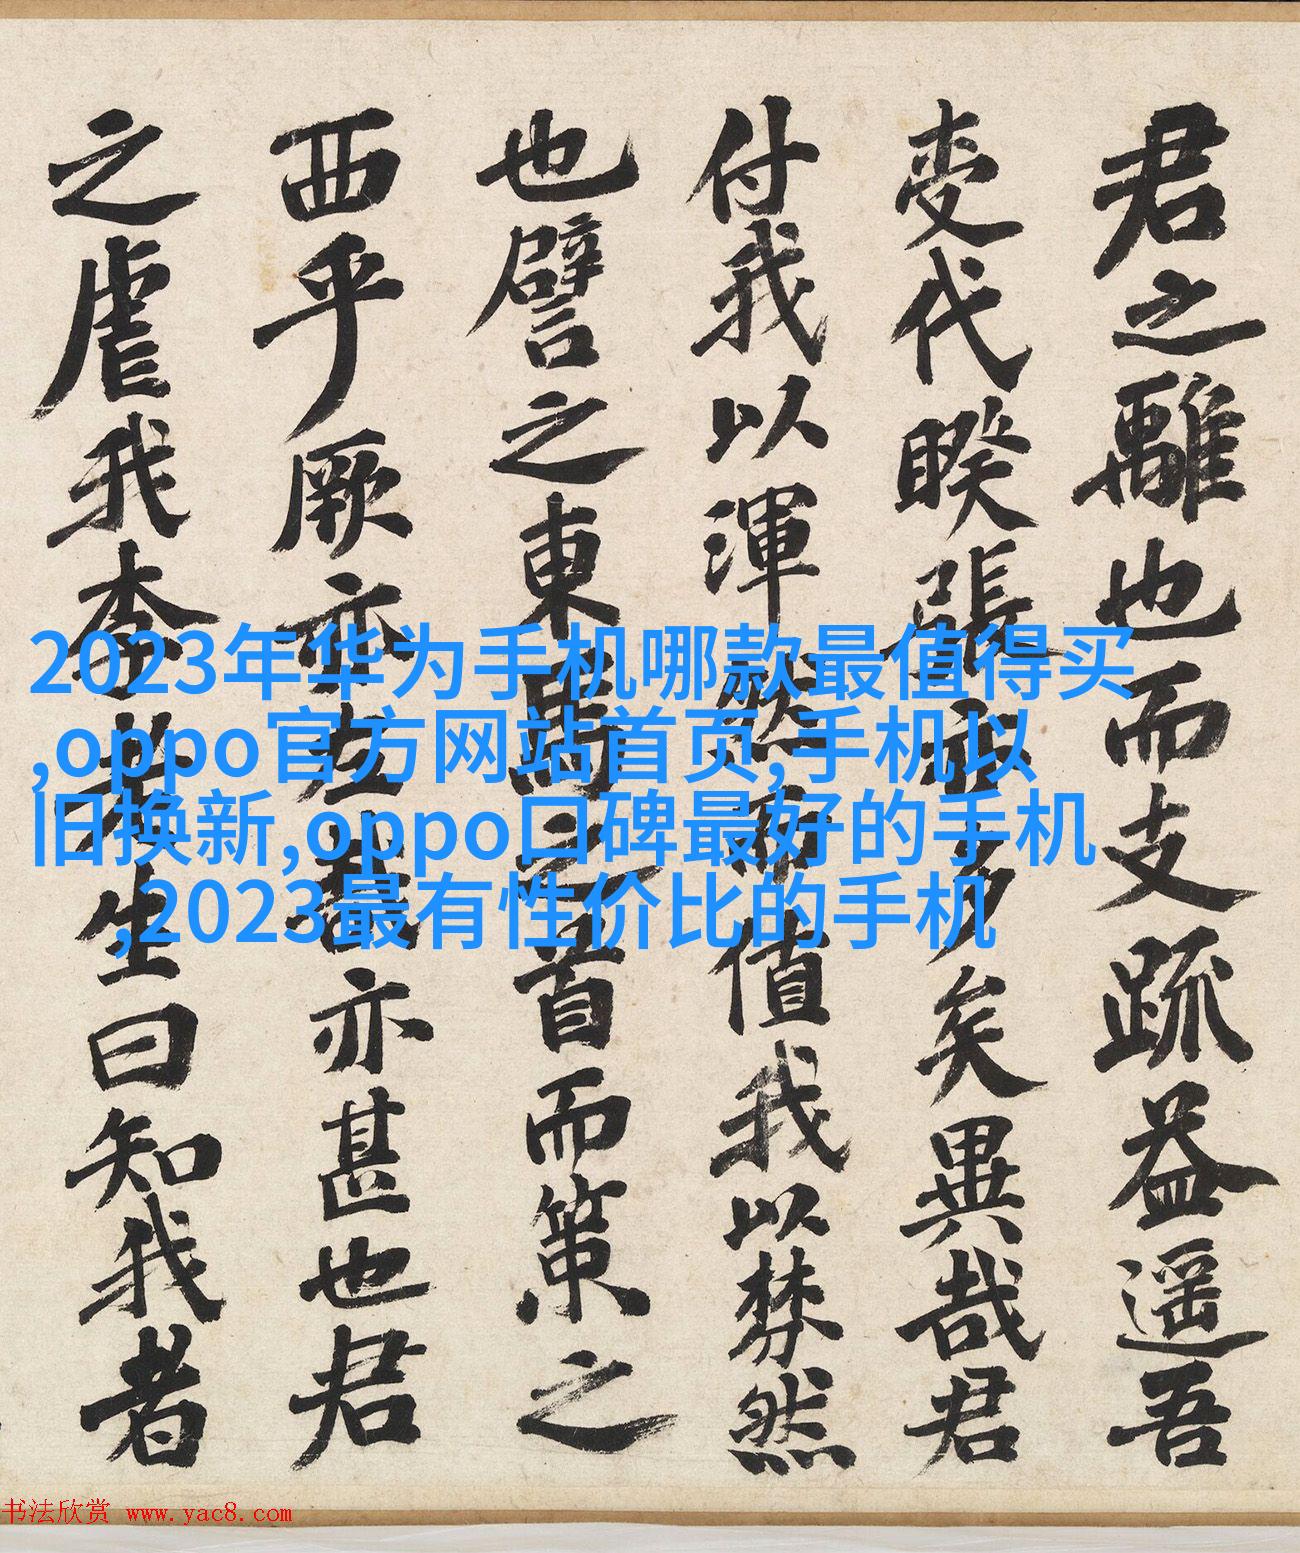 君之離也而支疏益遥吾
代暌張亦多矣異哉君
付我以渾然而值我以棼然
也譬之東馬之首而策之
西乎厥亦左亦甚也君
之虐我李先生曰知我者
2023年华为手机哪款最值得买
,oppo官方网站首页,手机以
旧换新,oppo口碑最好的手机
,2023最有性价比的手机
书法欣赏 www.yac8.com